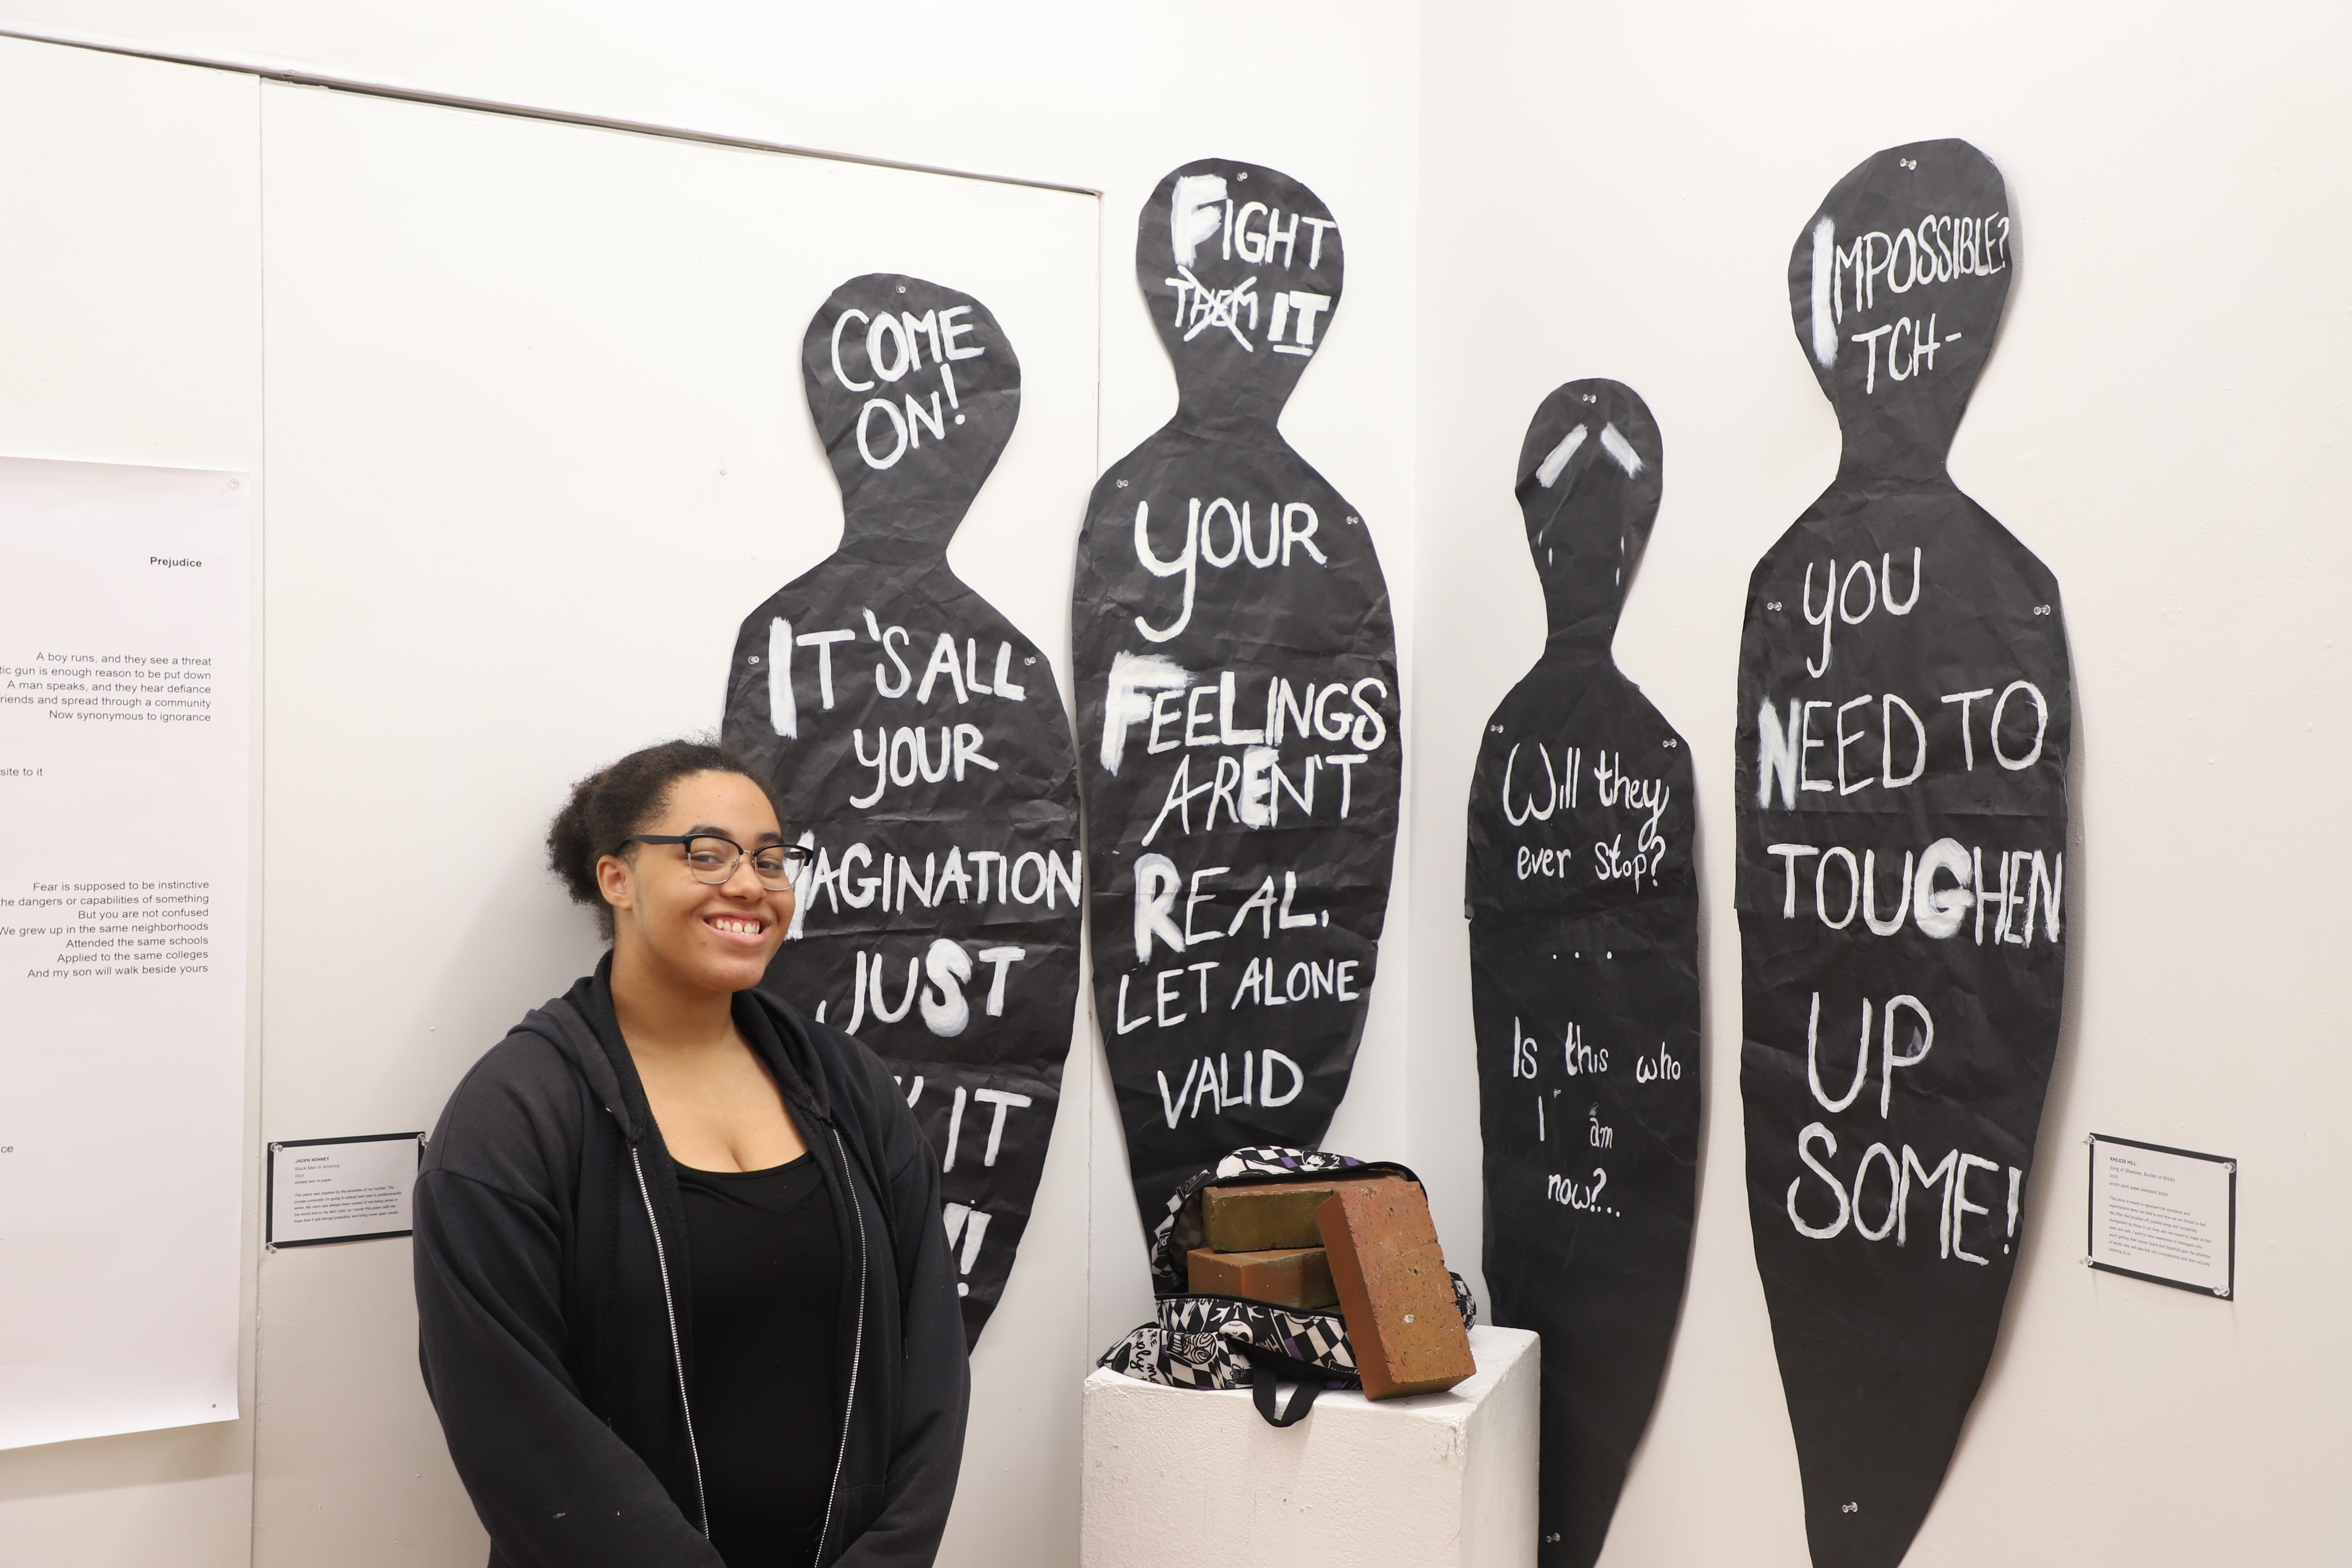 Prejudice
A boy runs, and they see a threat
tic gun is enough reason to be put down
A man speaks, and they hear defiance
riends and spread through a community
Now synonymous to ignorance
site to it
Fear is supposed to be instinctive
the dangers or capabilities of something
But you are not confused
We grew up in the same neighborhoods
Attended the same schools
Applied to the same colleges
And my son will walk beside yours
ce
JADEN KENNEY
Black Men in America
printed text on paper
COME
ON!
IT'S ALL
YOUR
MAGINATION
JUST
IT
!!
FIGHT
THEM IT
YOUR
FEELINGS
AREN'T
REAL.
LET ALONE
VALID
Will they
ever stop?
...
Is this who
I am
now?...
IMPOSSIBLE?
TCH-
YOU
NEED TO
TOUGHEN
UP
SOME!
HILL
Song of Shadows, Burden of Bricks
acrylic paint, paper, backpack, bricks